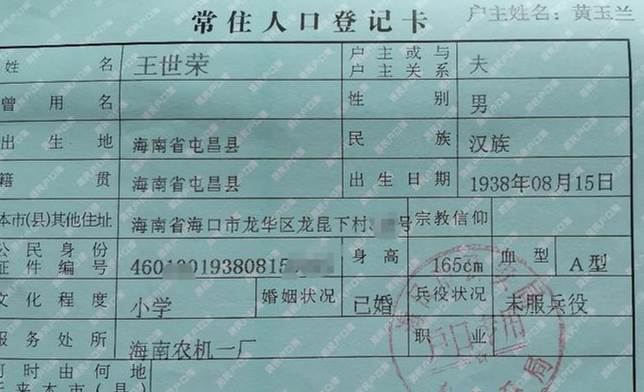 常住人口登记卡
户主姓名：黄玉兰
姓 名 王世荣 户主或与户主关系 夫
曾用名 性别 男
出生地 海南省屯昌县 民族 汉族
籍贯 海南省屯昌县 出生日期 1938年08月15日
本市(县)其他住址 海南省海口市龙华区龙昆下村 号 宗教信仰
公民身份证件编号 460 019380815 身高 165cm 血型 A型
文化程度 小学 婚姻状况 已婚 兵役状况 未服兵役
服务处所 海南农机一厂 职业
何时由何地
迁来本市(县)
户口专用